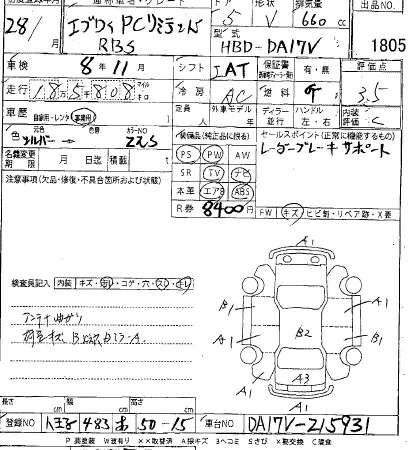 ドア 形状 排気量
28/ エブリイ PCリミテッド 5 V 660 cc 出品番号
RBS 型式 HBD-DA17V 1805
車検 8年11月 シフト IAT 保証書 有・無 評価点
走行 18万5千808 マイル キロ 冷房 AC 燃料 3.5
車歴 自家用・レンタ 事業用 定員 人 外車モデル 年 ディーラー 並行 ハンドル 左・右 内装評価 C
元色 シルバー → 色替 カラーNO Z2S 装備品(純正品に限る) セールスポイント(正常に機能するもの)
名義変更期限 月 日迄 積載 t PS PW AW レーダーブレーキサポート
注意事項(欠品・修復・不具合箇所および状態) SR TV ナビ
本革 エアB ABS
R券 8400円 FW キズ・ヒビ割・リペア跡・X要
A1
検査員記入 内装 キズ・汚レ・コゲ・穴・スレ・キレ B1 A1
アンテナ曲がり A1 B2 B1
A1 A3 A1
長さ cm 幅 cm 高さ cm
登録NO 八王子 483 あ 50-15 車台NO DA17V-215931
P 要塗装 W 波有り XX取替済 A 線キズ Bヘコミ Sさび X要交換 C腐食